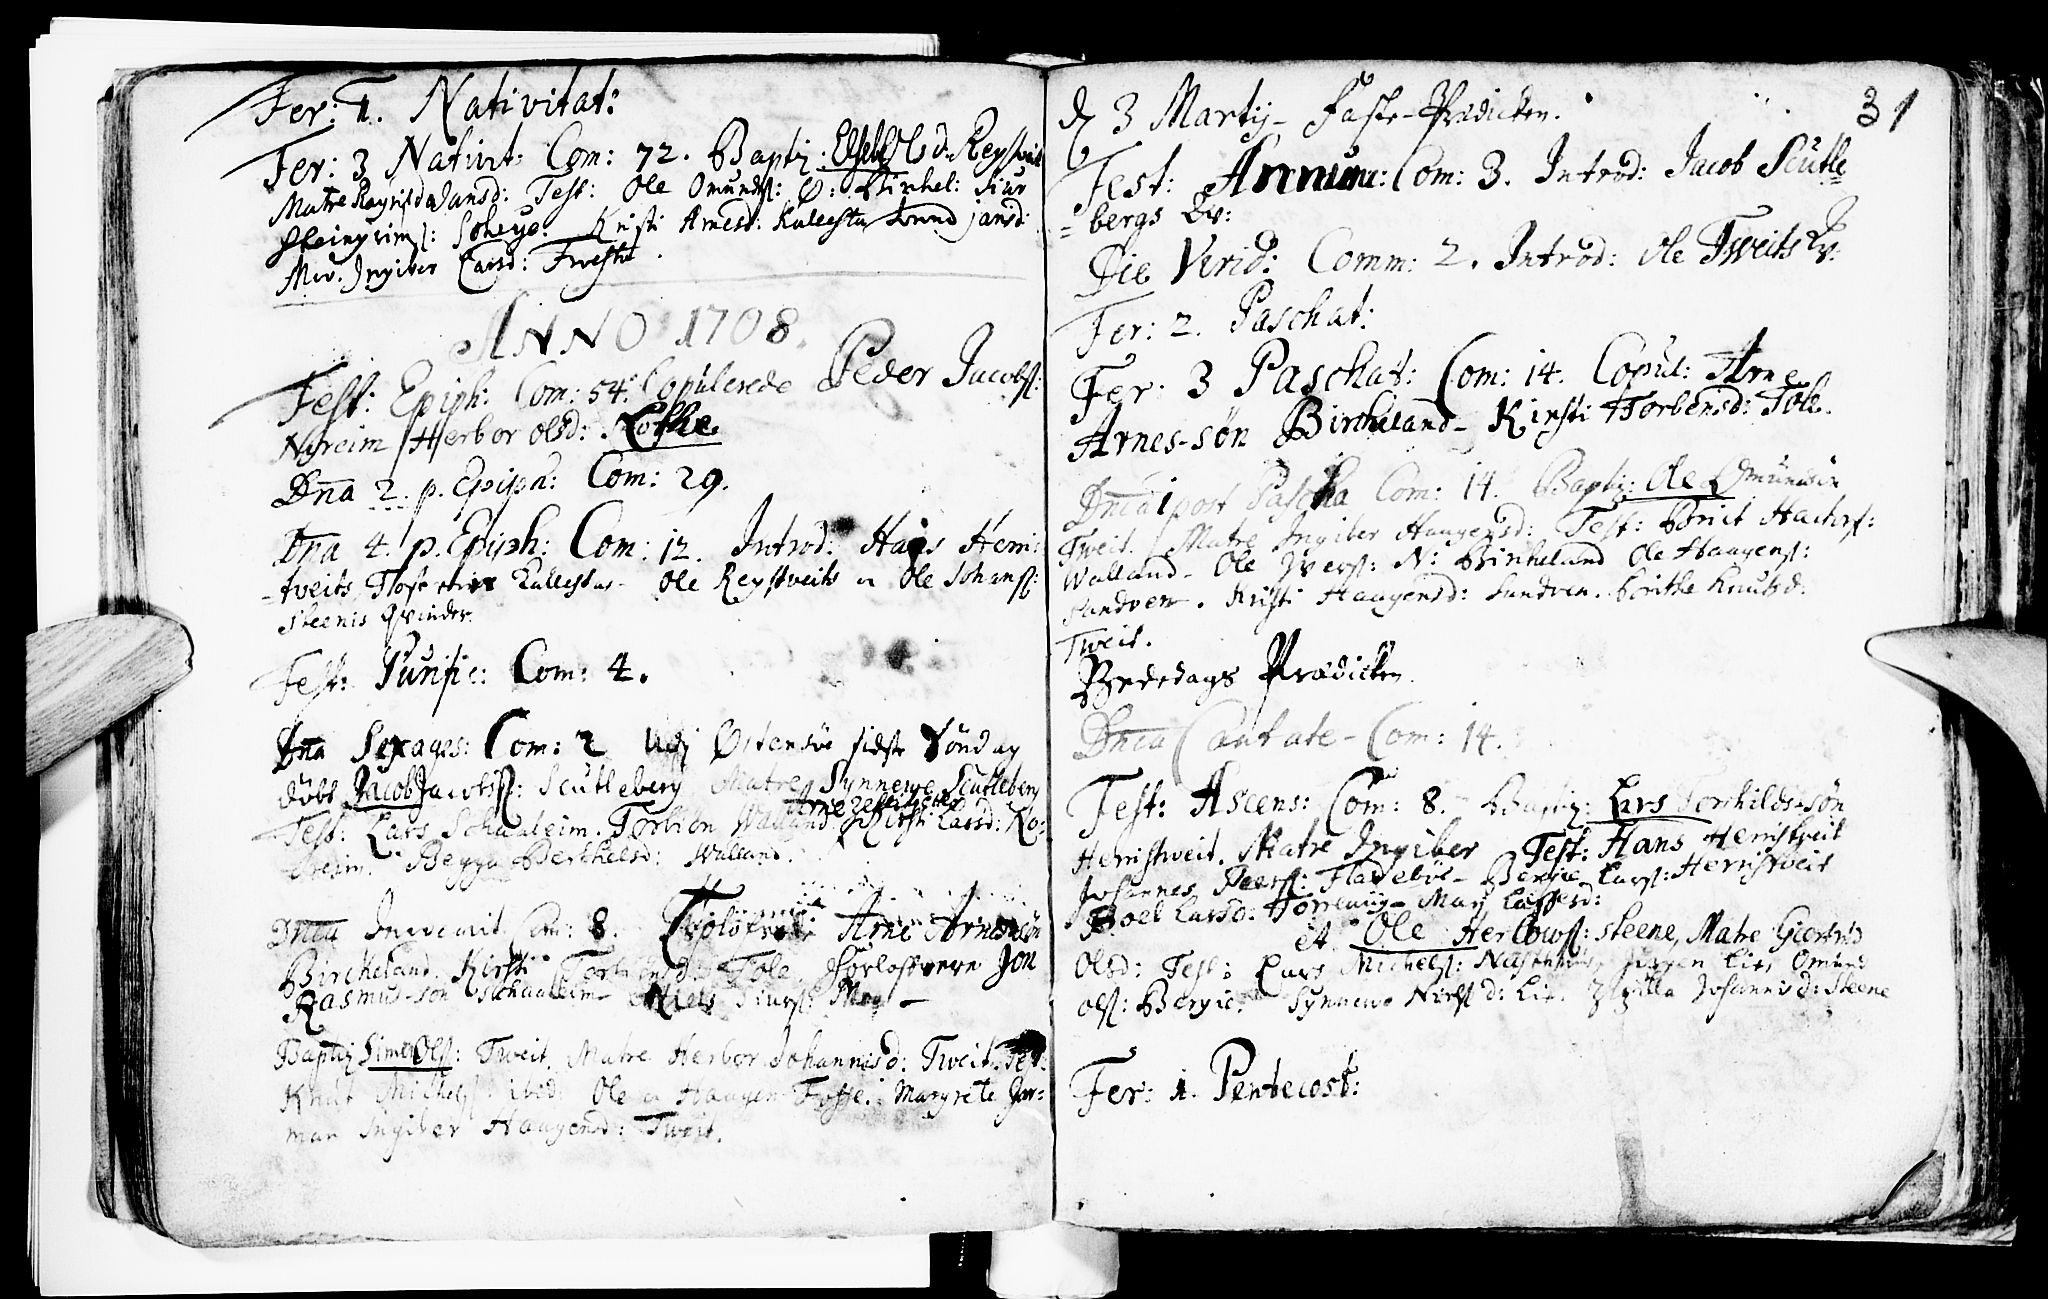 Fer: 1. Nativitat:
Fer: 3 Nativit: Com: 72. Baptiz: Elsebe Olsd: Reystveit
Matre Ragnilda Jansd: Test: Ole Omunds: Ø: Birkel: Siur
Steingrims: Soleye. Kirsti Arnesd: Kallestu Jansd:
Mev. Ingiber Larsd:
ANNO 1708.
Fest: Epiph: Com: 54. Copulerede Peder Jacobs:
Nyreim Herbor olsd: Lothe
Dna 2. p. Epiph: Com: 29.
Dna 4. p. Epiph: Com: 12. Introd: Hans Herri:
=tveits Kallestus - Ole Reystveits a Ole Johans:
Steenis Qvinder.
Fest: Purific: Com: 4.
Dna Sexages: Com: 2 Udj Østensøe sidste Søndag
døbt Jacob Jacobs: Scutleberg Matre Synnewe Scutleberg
Test: Lars Schaaleim. Torbiøn Walland Kirsti Larsd: Ro-
Begga Berthelsd: Walland.
Dnca Invocavit Com: 8. Troloferede Arne Arnesøn
Birckeland. Kirsti Torbensd: Tole. Forlofvere Jon
Rasmus-søn Schaaleim - Niels Siurs:
Baptiz Simen Ols: Tweit. Matre Herbor Johannisd: Tweit. Test:
Knut Michels: ibid: Ole a Haagen Fosse. Margrete Gor-
man Ingiber Haagensd: Tweit.
31
3 Martij - Faste-Prædicken.
Fest: Annunc: Com: 3. Introd: Jacob Scutle
=bergs Qv:
Die Virid: Comm: 2. Introd: Ole Tweits Qv:
Fer: 2. Paschat:
Fer: 3 Paschat: Com: 14. Copul: Arne
Arnes-søn Bircheland - Kirsti Torbensd: Tole.
Dnica 1 post Pascha Com: 14. Baptiz: Ole Omundsøn
Tweit. Matre Ingiber Haagensd: Test: Brict
Walland - Ole Ivers: N: Birkeland Ole Haagens:
Sandven. Kirsti Haagensd: Sandven. Brithe Knutsd.
Tweit.
Bededags Prædicken.
Dnica Cantate - Com: 14.
Fest: Ascens: Com: 8. - Baptiz: Lars Torkilds-søn
Herristveit. Matre Ingiber Test: Hans Herristveit
Johannes Peers: Fladebøe - Berge Lars: Herristveit
Boel Larsd: - Mari
et. Ole Herlows: Steene, Matre Giertrud
Olsd: Test: Lars Michels: Omund
Ols: Bergie. Synnewe Niels d: Johannisd: Steene
Fer: 1. Pentecost: